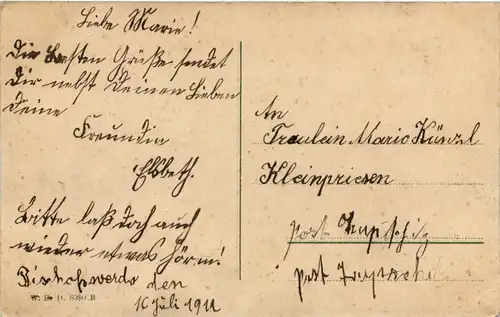 Liebe Marie!
Die besten Grüße sendet
Dir nebst Deinen Lieben
Deine
Freundin
Elsbeth.
Bitte laß doch auch
wieder etwas hör'n!
Bischofswerda den
16 Juli 1911
W. B. D. 8980 B
An
Fräulein Marie Künzl
Kleinpriesen
Post
Post